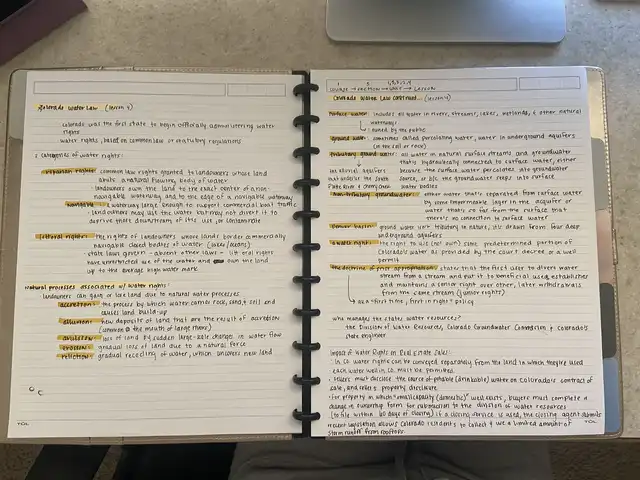 Colorado Water Law (lesson 4)
Colorado was the first state to begin officially administering water
rights
water rights, based on common law or statutory regulations
2 categories of water rights:
riparian rights: common law rights granted to landowners whose land
abuts a natural flowing body of water
landowners own the land to the exact center of a non-
navigable waterway, and to the edge of a navigable waterway
navigable: a waterway large enough to support commercial boat traffic
landowners may use the water but may not divert it to
deprive those downstream of its use, or contaminate
littoral rights: the rights of landowners whose lands border commercially
navigable closed bodies of water (lakes/oceans)
state laws govern - absent other laws - littoral rights
have unrestricted use of the water and own the land
up to the average high water mark
Natural processes associated w/ water rights:
landowners can gain or lose land due to natural water processes
accretion: the process by which water carries rock, sand, & soil and
causes land build-up
alluvion: new deposit of land that are the result of accretion
(common @ the mouth of large rivers)
avulsion: loss of land by sudden large-scale changes in water flow
erosion: gradual loss of land due to a natural force
reliction: gradual receding of water, which uncovers new land
Colorado Water Law continued... (lesson 4)
surface water: includes all water in rivers, streams, lakes, wetlands, & other natural
waterways
owned by the public
ground water: sometimes called percolating water, water in underground aquifers
(in the soil or rock)
tributary groundwater: all water in natural surface streams and groundwater
that's hydraulically connected to surface water, either
because the surface water percolates into groundwater
or b/c the groundwater seeps into surface
water bodies
non-tributary groundwater: other water that's separated from surface water
by some impermeable layer in the aquifer or
water that's so far from the surface that
there's no connection to surface water
Denver Basin: ground water isn't tributary in nature, it's drawn from four deep
underground aquifers
a water right: the right to use (not own) some predetermined portion of
Colorado's water as provided by the court decree or a well
permit
the doctrine of prior appropriation: states that the first user to divert water
from a stream and put it to beneficial use, establishes
and maintains a senior right over other, later withdrawals
from the same stream (junior rights)
aka "first in time, first in right" policy
who manages the states water resources?
the Division of Water Resources, Colorado Groundwater Commission & Colorado's
state engineer
Impact of Water Rights on Real Estate Sales:
In CO water rights can be conveyed separately from the land in which they're used
each water well in CO must be permitted
sellers must disclose the source of potable (drinkable) water on Colorado's contract of
sale, and seller's property disclosure
for property in which "small capacity (domestic)" well exists, buyers must complete a
change in ownership form for submission to the division of water resources
(to file within 60 days of closing) if a closing service is used, the closing agent submits
recent legislation allows Colorado residents to collect & use a limited amount of
storm runoff from rooftops